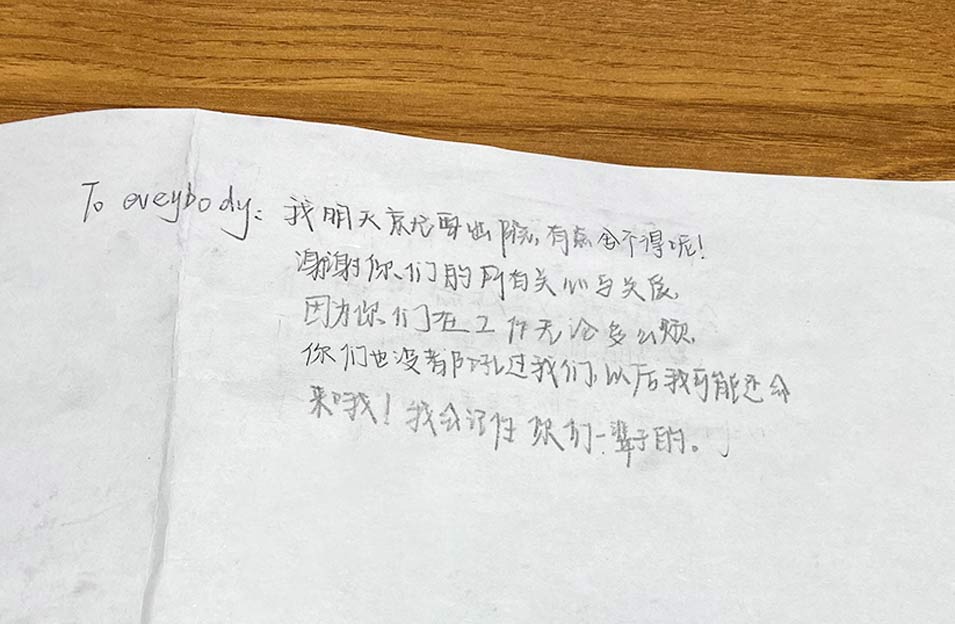 To eveybody: 我明天就要出院,有点舍不得呢!
谢谢你们的所有关心与关
因为你们在工作无论多么烦,
你们也没有吼过我们,以后我可能还会
来哦!我会记住你们一辈子的。